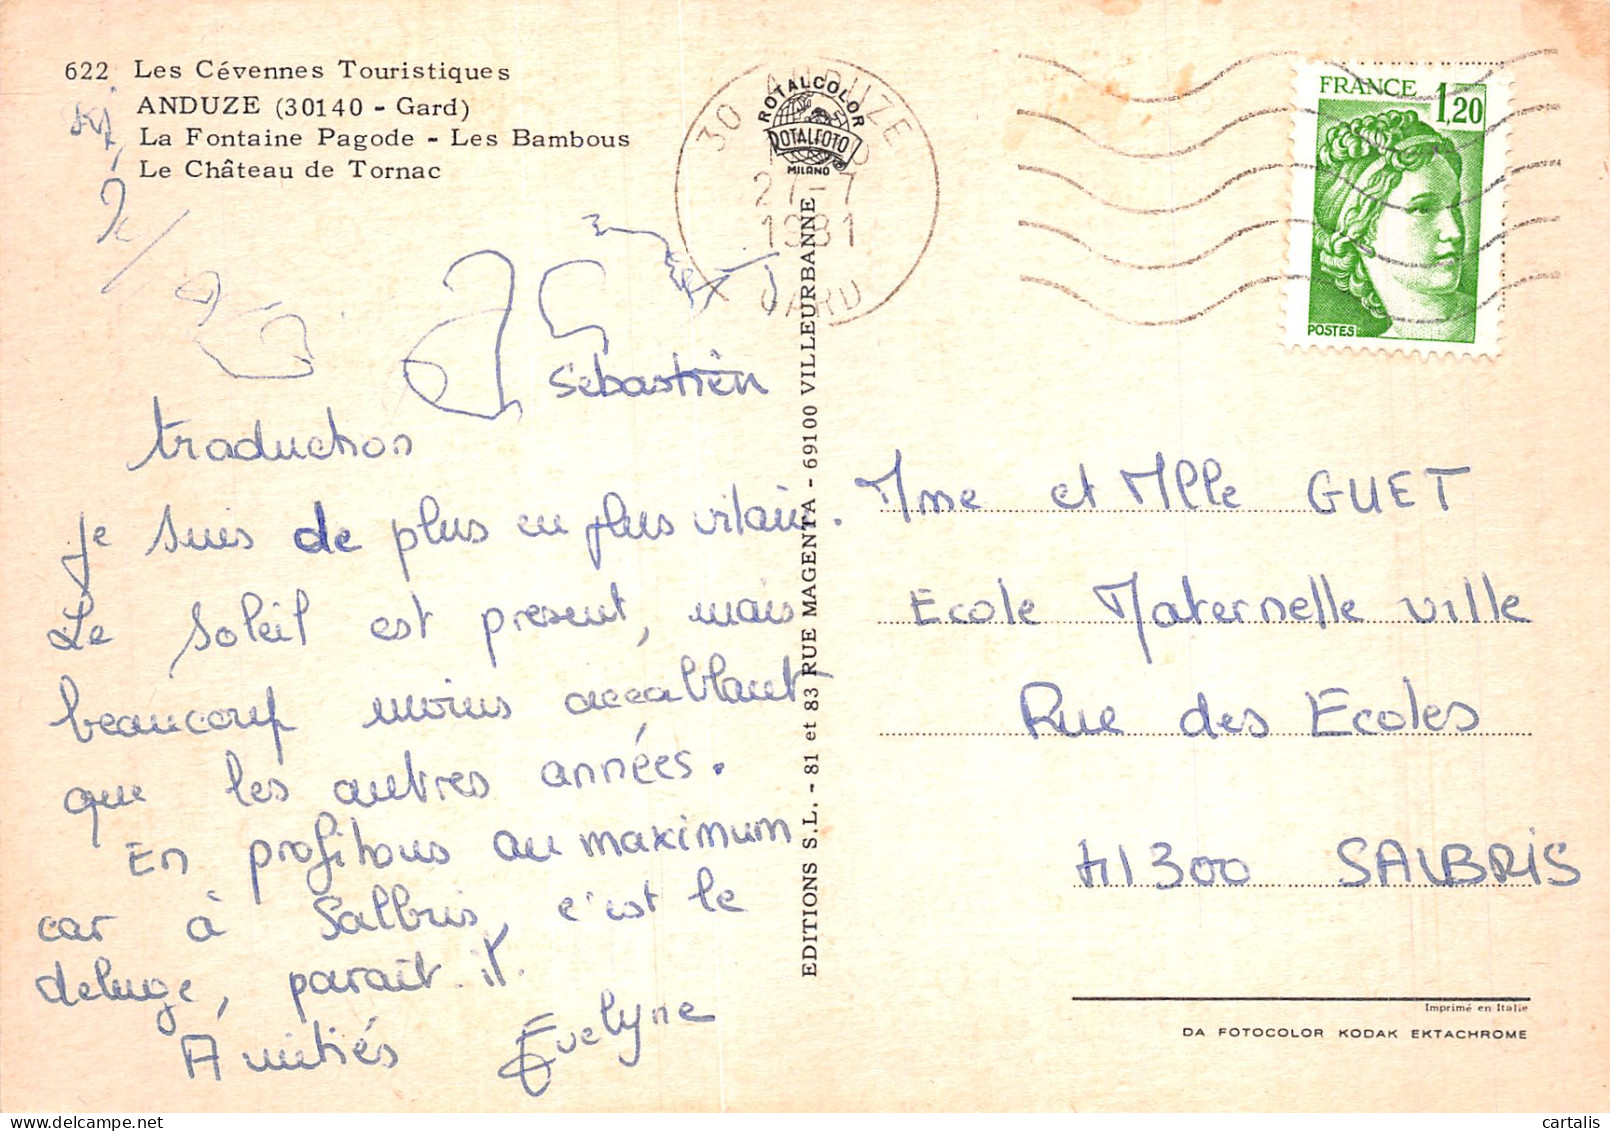 622 Les Cévennes Touristiques
ANDUZE (30140 - Gard)
La Fontaine Pagode - Les Bambous
Le Château de Tornac
Sébastien
traduction
je suis de plus en plus vilain.
Le soleil est présent, mais
beaucoup moins accablant
que les autres années.
En profitons au maximum
car à Salbris, c'est le
deluge, parait-il.
Amitiés Evelyne
EDITIONS S.L. - 81 et 83 RUE MAGENTA - 69100 VILLEURBANNE
ROTALCOLOR
ROTALFOTO
MILANO
30 ANDUZE
27-7
1981
GARD
FRANCE 1,20
POSTES
Mme et Mlle GUET
Ecole Maternelle ville
Rue des Ecoles
41300 SALBRIS
Imprimé en Italie
DA FOTOCOLOR KODAK EKTACHROME
cartalis